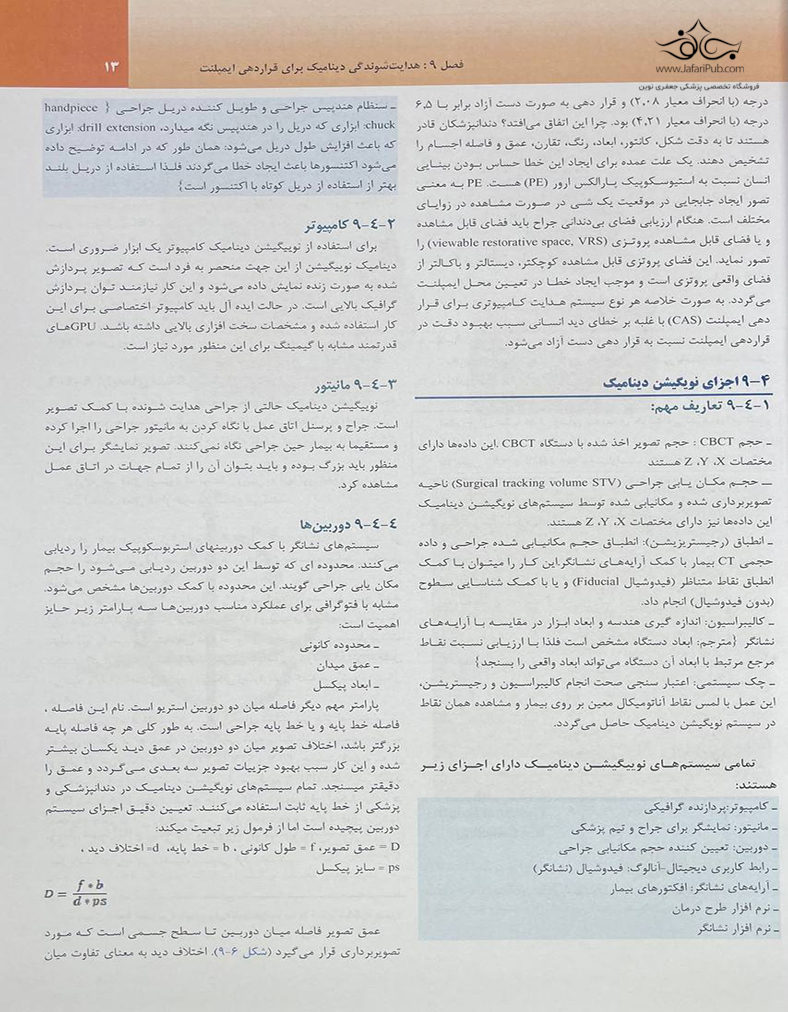 فصل ۹ : هدایت‌شوندگی دینامیک برای قراردهی ایمپلنت
۱۳
www.JafariPub.com
فروشگاه تخصصی پزشکی جعفری نوین
درجه (با انحراف معیار ۲,۰۸) و قرار دهی به صورت دست آزاد برابر با ۶,۵
درجه (با انحراف معیار ۴,۲۱) بود. چرا این اتفاق می‌افتد؟ دندانپزشکان قادر
هستند تا به دقت شکل، کانتور، ابعاد، رنگ، تقارن، عمق و فاصله اجسام را
تشخیص دهند. یک علت عمده برای ایجاد این خطا حساس بودن بینایی
انسان نسبت به استیوسکوپیک پارالکس ارور (PE) هست. PE به معنی
تصور ایجاد جابجایی در موقعیت یک شی در صورت مشاهده در زوایای
مختلف است. هنگام ارزیابی فضای بی‌دندانی جراح باید فضای قابل مشاهده
و یا فضای قابل مشاهده پروتزی (viewable restorative space, VRS) را
تصور نماید. این فضای پروتزی قابل مشاهده کوچکتر، دیستالتر و باکالتر از
فضای واقعی پروتزی است و موجب ایجاد خطا در تعیین محل ایمپلنت
می‌گردد. به صورت خلاصه هر نوع سیستم هدایت کامپیوتری برای قرار
دهی ایمپلنت (CAS) با غلبه بر خطای دید انسانی سبب بهبود دقت در
قراردهی ایمپلنت نسبت به قرار دهی دست آزاد می‌شود.
۹-۴ اجزای نویگیشن دینامیک
۹-۴-۱ تعاریف مهم:
ـ حجم CBCT : حجم تصویر اخذ شده با دستگاه CBCT .این داده‌ها دارای
مختصات X، Y، Z هستند
ـ حجم مکان یابی جراحی (Surgical tracking volume STV) ناحیه
تصویربرداری شده و مکانیابی شده توسط سیستم‌های نویگیشن دینامیک
این داده‌ها نیز دارای مختصات X، Y، Z هستند.
ـ انطباق (رجیستریزیشن): انطباق حجم مکانیابی شده جراحی و داده
حجمی CT بیمار با کمک آرایه‌های نشانگر.این کار را میتوان با کمک
انطباق نقاط متناظر (فیدوشیال Fiducial) و یا با کمک شناسایی سطوح
(بدون فیدوشیال) انجام داد.
ـ کالیبراسیون: اندازه گیری هندسه و ابعاد ابزار در مقایسه با آرایه‌های
نشانگر {مترجم: ابعاد دستگاه مشخص است فلذا با ارزیابی نسبت نقاط
مرجع مرتبط با ابعاد آن دستگاه می‌تواند ابعاد واقعی را بسنجد}
ـ چک سیستمی: اعتبار سنجی صحت انجام کالیبراسیون و رجیستریشن،
این عمل با لمس نقاط آناتومیکال معین بر روی بیمار و مشاهده همان نقاط
در سیستم نویگیشن دینامیک حاصل می‌گردد.
تمامی سیستم‌های نوییگیشن دینامیک دارای اجزای زیر
هستند:
ـ کامپیوتر:پردازنده گرافیکی
ـ مانیتور: نمایشگر برای جراح و تیم پزشکی
ـ دوربین: تعیین کننده حجم مکانیابی جراحی
ـ رابط کاربری دیجیتال-آنالوگ: فیدوشیال (نشانگر)
ـ آرایه‌های نشانگر: افکتورهای بیمار
ـ نرم افزار طرح درمان
ـ نرم افزار نشانگر
ـ سنظام هندپیس جراحی و طویل کننده دریل جراحی { handpiece
chuck: ابزاری که دریل را در هندپیس نگه میدارد، drill extension: ابزاری
که باعث افزایش طول دریل می‌شود: همان طور که در ادامه توضیح داده
می‌شود اکتنسورها باعث ایجاد خطا می‌گردند فلذا استفاده از دریل بلند
بهتر از استفاده از دریل کوتاه با اکتنسور است}
۹-۴-۲ کامپیوتر
برای استفاده از نوییگیشن دینامیک کامپیوتر یک ابزار ضروری است.
دینامیک نوییگیشن از این جهت منحصر به فرد است که تصویر پردازش
شده به صورت زنده نمایش داده می‌شود و این کار نیازمند توان پردازش
گرافیک بالایی است. در حالت ایده آل باید کامپیوتر اختصاصی برای این
کار استفاده شده و مشخصات سخت افزاری بالایی داشته باشد. GPUهای
قدرتمند مشابه با گیمینگ برای این منظور مورد نیاز است.
۹-۴-۳ مانیتور
نوییگیشن دینامیک حالتی از جراحی هدایت شونده با کمک تصویر
است. جراح و پرسنل اتاق عمل با نگاه کردن به مانیتور جراحی را اجرا کرده
و مستقیما به بیمار حین جراحی نگاه نمی‌کنند. تصویر نمایشگر برای این
منظور باید بزرگ بوده و باید بتوان آن را از تمام جهات در اتاق عمل
مشاهده کرد.
۹-۴-۴ دوربین‌ها
سیستم‌های نشانگر با کمک دوربینهای استریوسکوپیک بیمار را ردیابی
می‌کنند. محدوده ای که توسط این دو دوربین ردیابی می‌شود را حجم
مکان یابی جراحی گویند. این محدوده با کمک دوربین‌ها مشخص می‌شود.
مشابه با فتوگرافی برای عملکرد مناسب دوربین‌ها سه پارامتر زیر حایز
اهمیت است:
ـ محدوده کانونی
ـ عمق میدان
ـ ابعاد پیکسل
پارامتر مهم دیگر فاصله میان دو دوربین استریو است. نام این فاصله ،
فاصله خط پایه و یا خط پایه جراحی است. به طور کلی هر چه فاصله پایه
بزرگتر باشد، اختلاف تصویر میان دو دوربین در عمق دید یکسان بیشتر
شده و این کار سبب بهبود جزییات تصویر سه بعدی می‌گردد و عمق را
دقیقتر میسنجد. تمام سیستم‌های نویگیشن دینامیک در دندانپزشکی و
پزشکی از خط پایه ثابت استفاده می‌کنند. تعیین دقیق اجزای سیستم
دوربین پیچیده است اما از فرمول زیر تبعیت میکند:
D = عمق تصویر، f = طول کانونی ، b = خط پایه، d= اختلاف دید ،
ps = سایز پیکسل
D = f * b / d * ps
عمق تصویر فاصله میان دوربین تا سطح جسمی است که مورد
تصویربرداری قرار می‌گیرد (شکل ۶-۹). اختلاف دید به معنای تفاوت میان